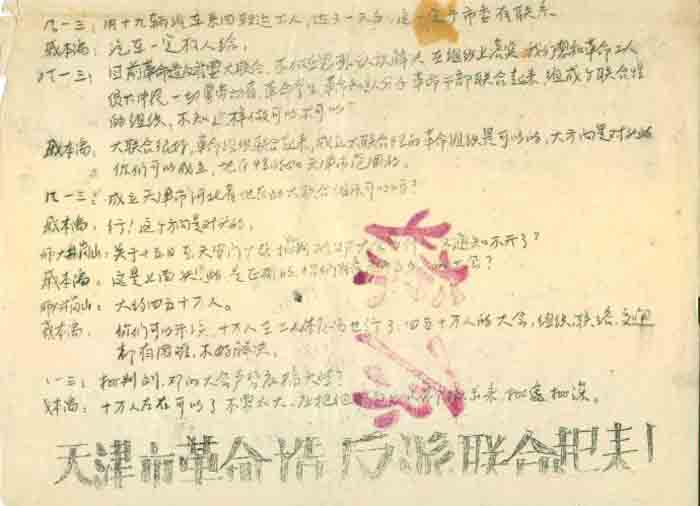 八一三: 用十九辆汽车来回驶运工人, 达了一天多, 这一定于市委有联系。
戚本禹: 汽车一定有人给。
八一三: 目前革命造反派要大联合, 不仅在思想上 在组织上落实 我们要和革命工人
贫下中农 一切劳动者 革命学生 革命知识分子 革命干部联合起来, 组成个联合性
的组织, 不知这样做可以不可以?
戚本禹: 大联合很好, 革命组织联合起来, 成立大联合性的革命组织是可以的, 大方向是对的
你们可以成立, 地区性的如天津市范围的。
八一三: 成立天津市河北省地区的大联合组织可以吗?
戚本禹: 行! 这个方向是对头的。
师大井岗山: 关于十五日在天安门广场 大会 通知不开了?
戚本禹: 这是上面决定的 是正确的 你们
师大井岗山: 大约四五十万人。
戚本禹: 你们可以开么, 十万人在工人体育场也行了, 四五十万人的大会, 组织, 联络, 交通
都有困难, 不好解决。
八一三: 批判刘, 邓的大会声势应搞大些?
戚本禹: 十万人左右可以了 不要太大, 应把他 出来 批透批深。
天津市革命造反派联合起来!